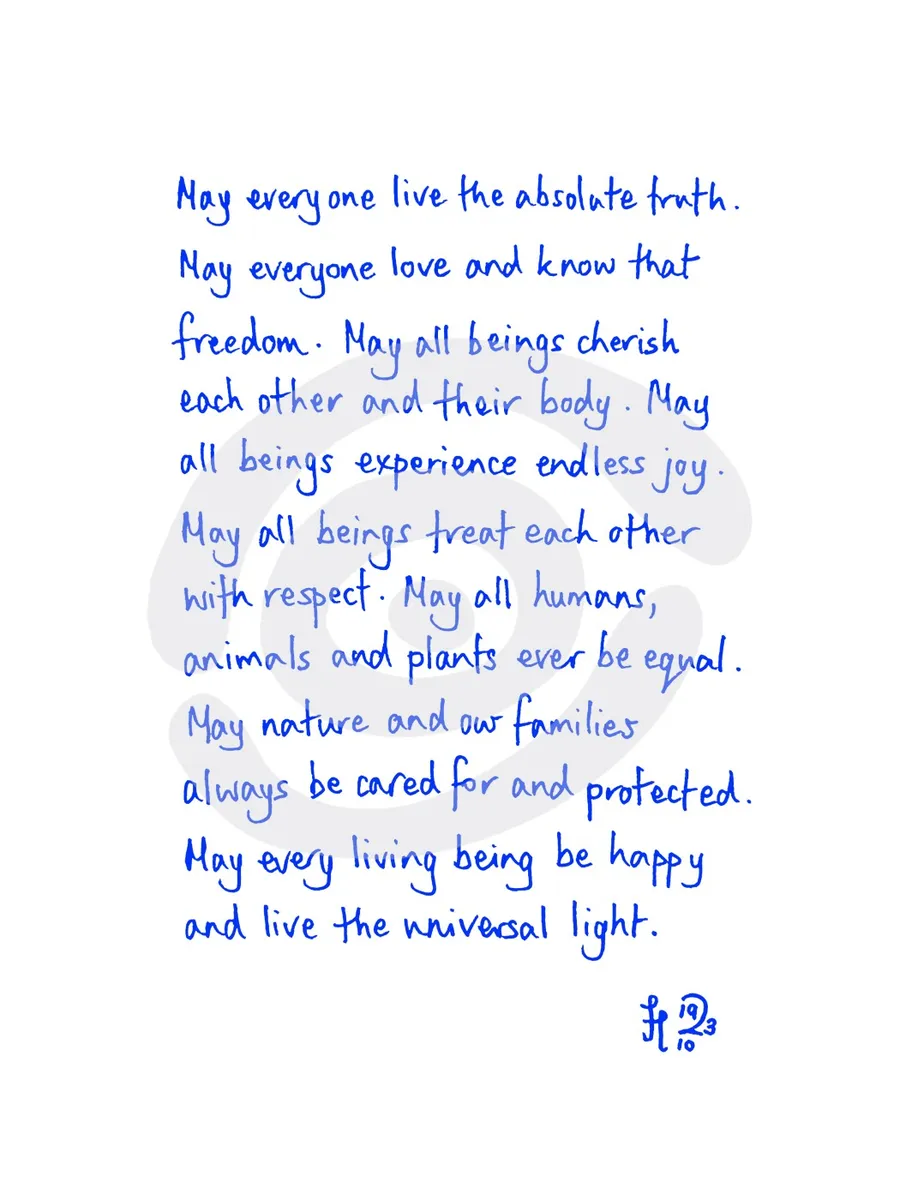 May everyone live the absolute truth.
May everyone love and know that
freedom. May all beings cherish
each other and their body. May
all beings experience endless joy.
May all beings treat each other
with respect. May all humans,
animals and plants ever be equal.
May nature and our families
always be cared for and protected.
May every living being be happy
and live the universal light.
19
23
10